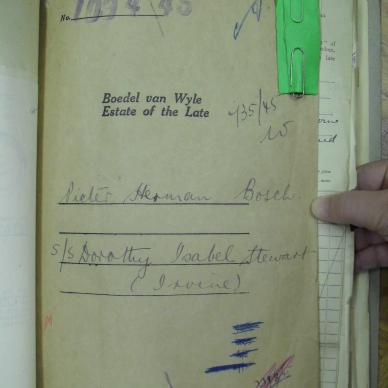 No. 1994/45
Boedel van Wyle
Estate of the Late
735/45
W
Pieter Herman Bosch.
s/s Dorothy Isabel Stewart
(Irvine)